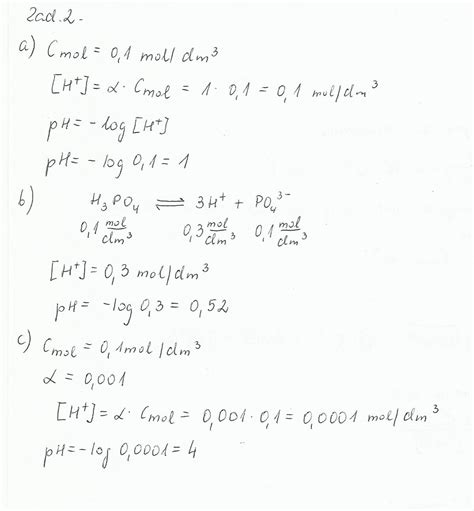 Zad. 2.
a) Cmol = 0,1 mol/dm³
[H⁺] = α · Cmol = 1 · 0,1 = 0,1 mol/dm³
pH = -log [H⁺]
pH = -log 0,1 = 1
b) H₃PO₄ ⇌ 3H⁺ + PO₄³⁻
0,1 mol/dm³ 0,3 mol/dm³ 0,1 mol/dm³
[H⁺] = 0,3 mol/dm³
pH = -log 0,3 = 0,52
c) Cmol = 0,1 mol/dm³
α = 0,001
[H⁺] = α · Cmol = 0,001 · 0,1 = 0,0001 mol/dm³
pH = -log 0,0001 = 4